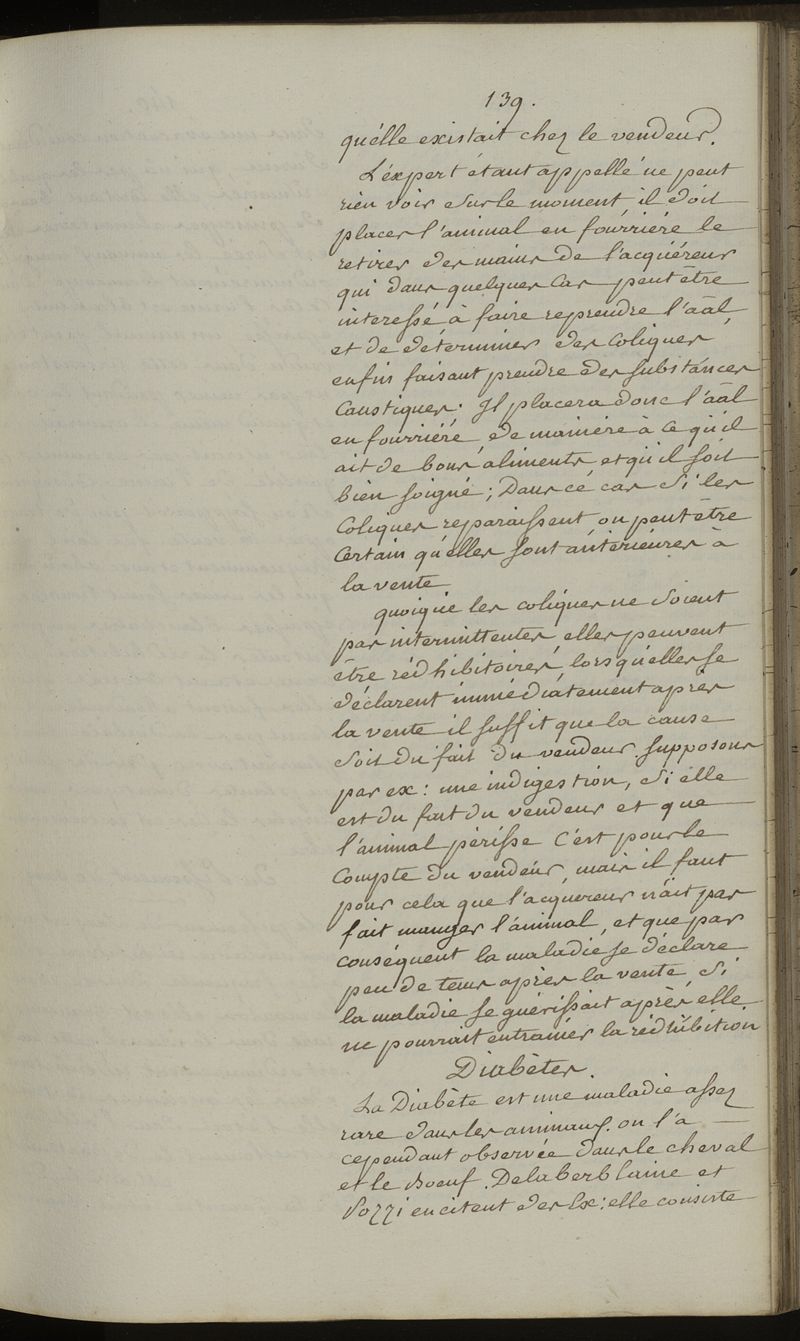 139.
qu'élle existait chez le vendeur.
L'éxpert étant appellé ne peut
rien voir sur le moment il doit
placer l'animal en fourrière le
retirer des mains de l'acquéreur
qui dans quelques cas peut être
interessé à faire reprendre l'aāl
et de déterminer des coliques
enfin faisant prendre des substances
Caustiques. Il placera donc l'aāl
en fourriére de manière à ce qu'il
ait de bons aliments et qu'il soit
bien soigné; Dans ce cas si les
Coliques reparaissent on peut être
Certain qu'elles sont antérieures à
la vente
quoique les coliques ne soient
pas intermittentes elles peuvent
être rédhibitoires, lorsqu'elles se
déclarent immédiatement après
la vente il suffit que la cause
soit du fait du vendeur supposons
par ex: une indigestion, si elle
est du fait du vendeur et que
l'animal périsse C'est pour le
Compte du vendeur, mais il faut
pour cela que l'acquereur n'ait pas
fait manger l'animal, et que par
conséquent la maladie se déclare
peu de tems après la vente, si
la maladie se guérissait après elle
ne pourrait entrainer la rédhibition
Diabètes.
La Diabète est une maladie assez
rare dans les animaux. on l'a
cependant observée dans le cheval
et le Boeuf. Delaberblaine et
Pozzi en citent des Ex: elle consiste